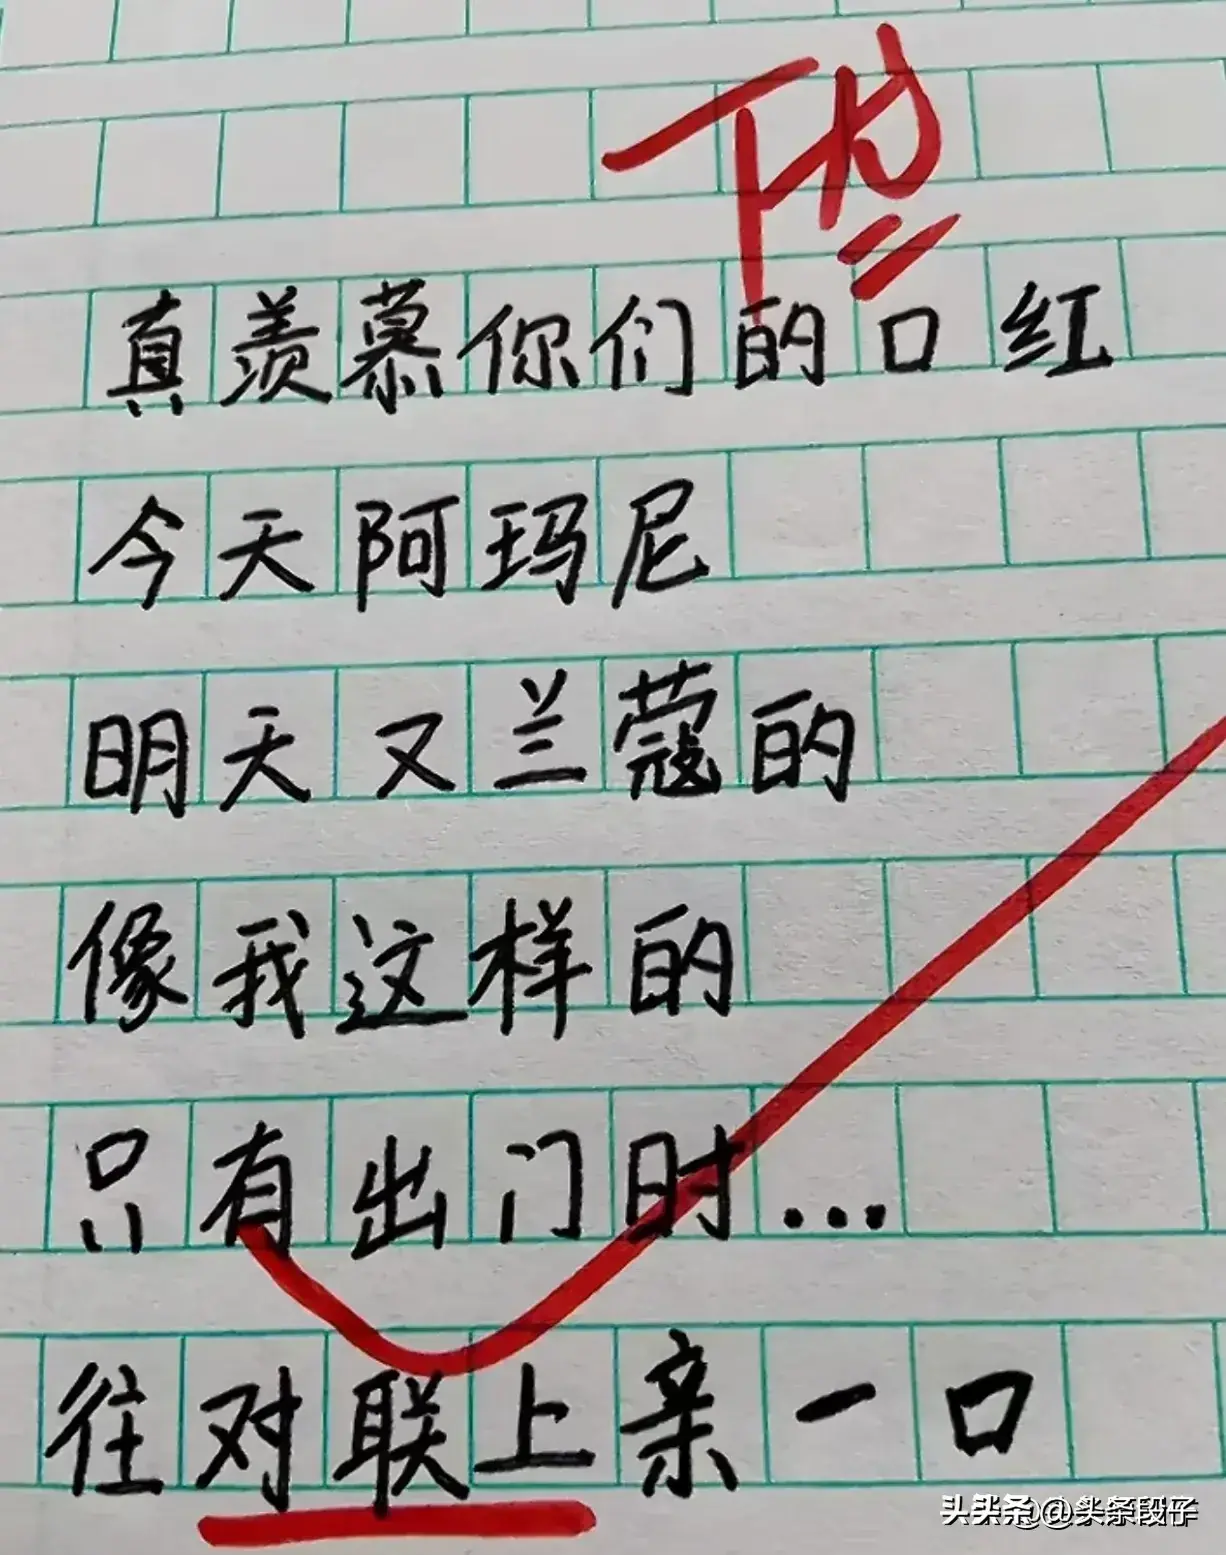 真羡慕你们的口红
今天阿玛尼
明天又兰蔻的
像我这样的
只有出门时...
往对联上亲一口
头头条@头条段子